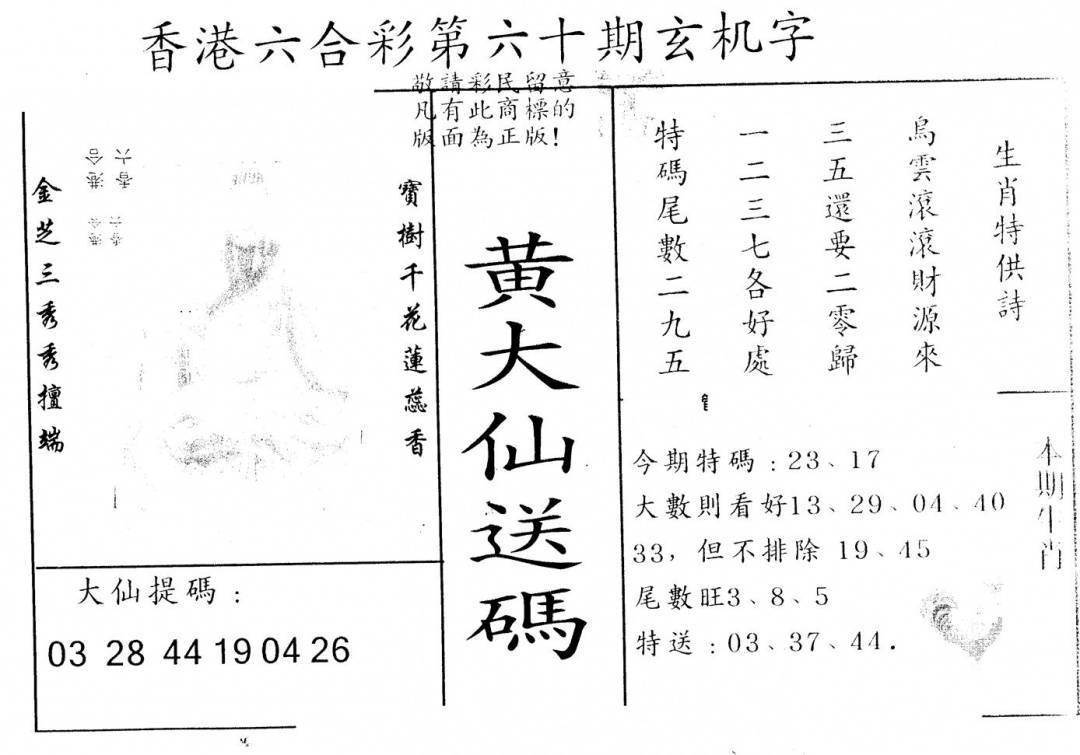 香港六合彩第六十期玄机字
敬請彩民留意
凡有此商標的
版面為正版!
生肖特供詩
烏雲滾滾財源來
三五還要二零歸
一二三七各好處
特碼尾數二九五
黄大仙送碼
寶樹千花蓮蕊香
金芝三秀秀擅端
香港六合
大仙提碼:
03 28 44 19 04 26
今期特碼:23、17
大數則看好13、29、04、40
33,但不排除 19、45
尾數旺3、8、5
特送:03、37、44.
本期生肖